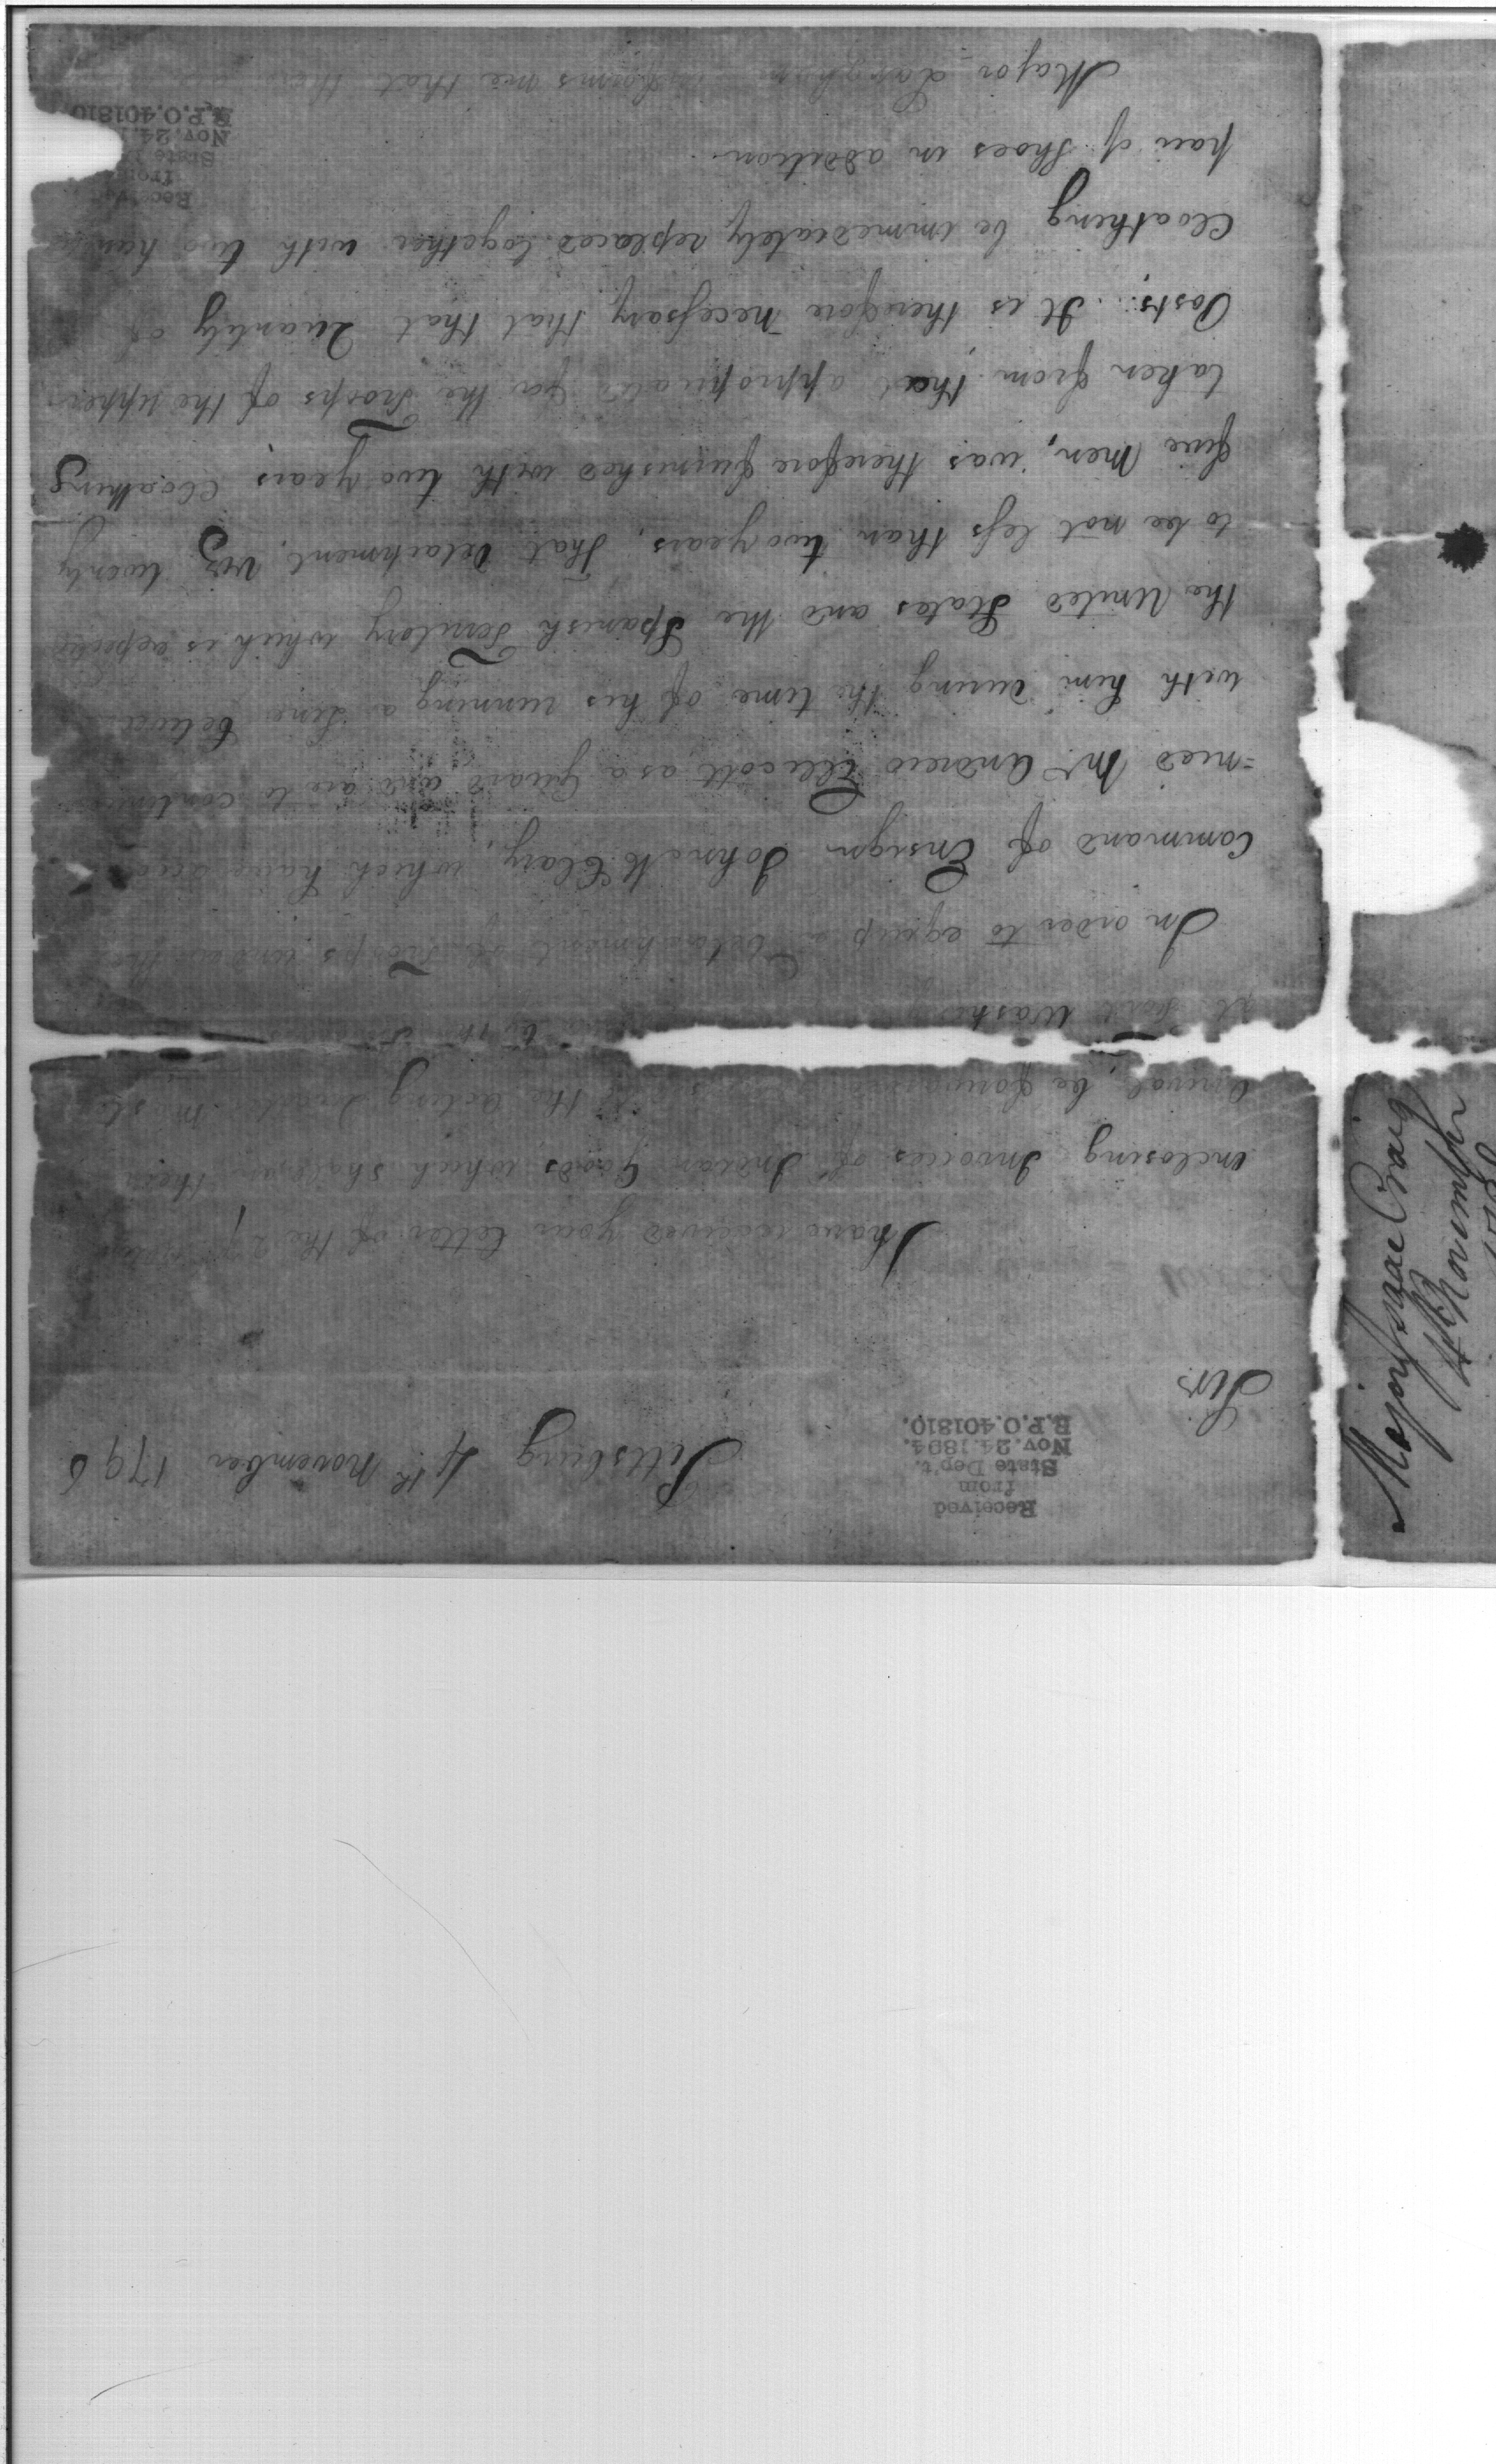 Received
from
State Dep't.
Nov. 24. 1894.
R.P.O. 401810.
Pittsburg 4th November 1796
Sir
I have received your letter of the
enclosing Invoices of Indian Goods which shall on their
Arrival, be forwarded to the acting Quarter Mast
at Fort Washington by the
In order to equip a Detachment of Troops under the
Command of Ensign John McClary, which have accom
=nied Mr Andrew Ellicott as a Guard and are to continue
with him during the time of his running a Line between
the United States and the Spanish Territory which is expected
to be not less than two years. That Detachment, viz twenty
five Men, was therefore furnished with two years Cloathing
taken from that appropriated for the Troops of the upper
Posts: It is therefore necessary that that Quantity of
Cloathing be immediately replaced together with two hundred
pair of Shoes in addition.
Major informs me that
Received
from
State
Nov. 24. 1
R.P.O. 401810
Major Isaac Craig
4th November